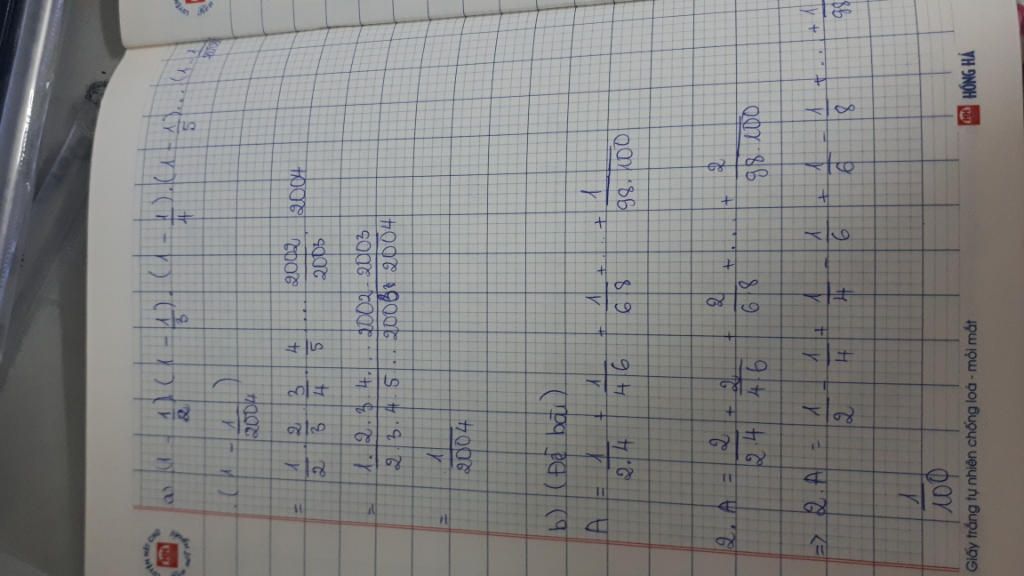 a) (1 - 1/2) (1 - 1/3) . (1 - 1/4) . (1 - 1/5) ... (1 - 1/2003)
. (1 - 1/2004)
= 1/2 . 2/3 . 3/4 . 4/5 .... 2002/2003 . 2004
= 1.2.3.4... 2002.2003 / 2.3.4.5... 2003.2004
= 1/2004
b) (Đề bài)
A = 1/2.4 + 1/4 6 + 1/6 8 + ... + 1/98.100
2.A = 2/2 4 + 2/4 6 + 2/6 8 + ... + 2/98.100
=> 2.A = 1/2 - 1/4 + 1/4 - 1/6 + 1/6 - 1/8 + ... + 1/98
1/100
Giấy trắng tự nhiên chống loá - mỏi mắt
HỒNG HÀ